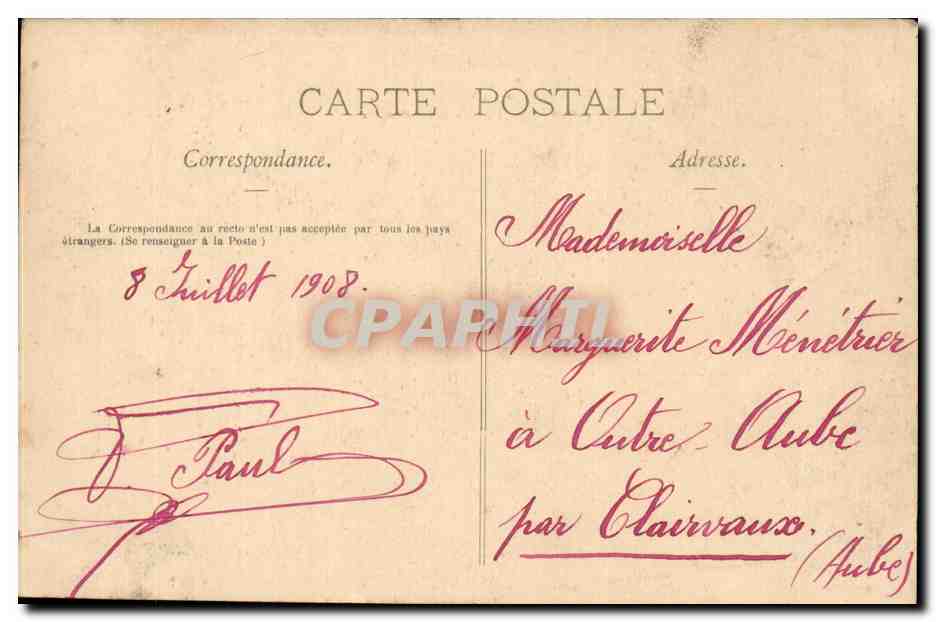 CARTE POSTALE
Correspondance.
La Correspondance au recto n'est pas acceptée par tous les pays
étrangers. (Se renseigner à la Poste)
8 Juillet 1908.
Paul
Adresse.
Mademoiselle
Marguerite Ménétrier
à Outre-Aube
par Clairvaux.
(Aube)
CPAPHIL